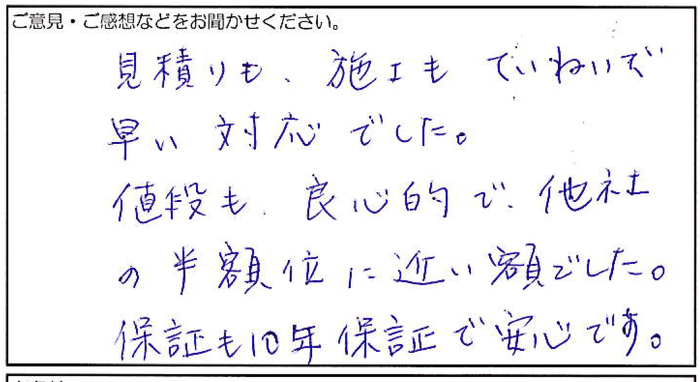 ご意見・ご感想などをお聞かせください。
見積りも、施工も ていねいで
早い 対応 でした。
値段も、良心的で、他社
の半額位に近い額でした。
保証も10年保証で安心です。